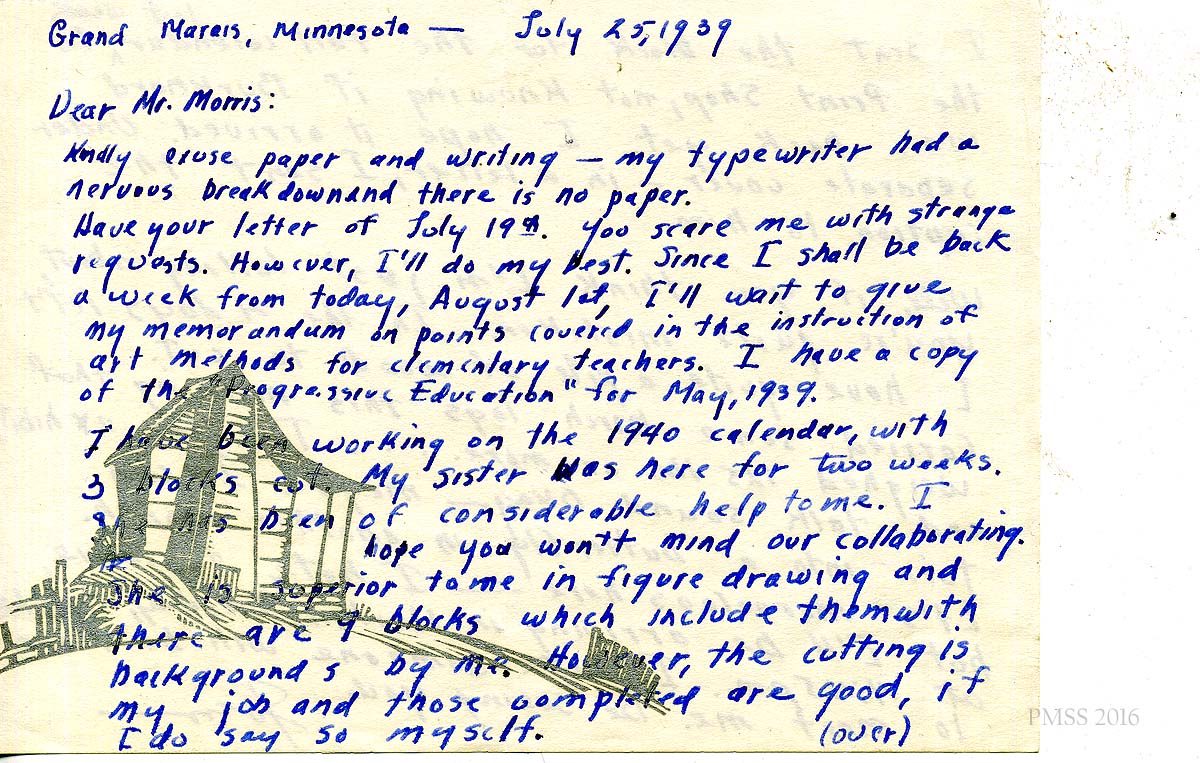 Grand Marais, Minnesota — July 25, 1939
Dear Mr. Morris:
Kindly excuse paper and writing — my typewriter had a
nervous breakdown and there is no paper.
Have your letter of July 19th. You scare me with strange
requests. However, I'll do my best. Since I shall be back
a week from today, August 1st, I'll wait to give
my memorandum on points covered in the instruction of
art methods for elementary teachers. I have a copy
of the "Progressive Education" for May, 1939.
I have been working on the 1940 calendar, with
3 blocks cut. My sister was here for two weeks.
She has been of considerable help to me. I
hope you won't mind our collaborating.
She is superior to me in figure drawing and
there are 9 blocks which include them with
backgrounds by me. However, the cutting is
my job and those completed are good, if
I do say so myself. (over)
PMSS 2016